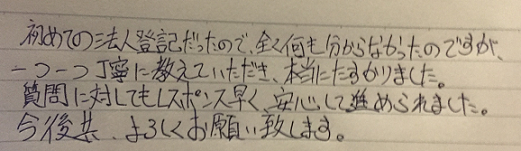 初めての法人登記だったので、全く何も分からなかったのですが、
一つ一つ丁寧に教えていただき、本当にたすかりました。
質問に対してもレスポンス早く、安心して進められました。
今後共、よろしくお願い致します。